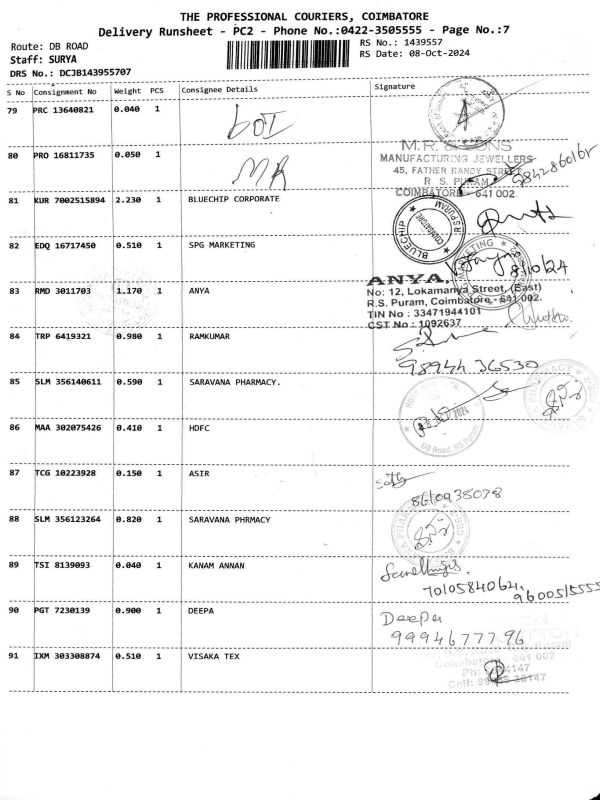 THE PROFESSIONAL COURIERS, COIMBATORE
Delivery Runsheet - PC2 - Phone No.:0422-3505555 - Page No.:7
Route: DB ROAD
RS No.: 1439557
Staff: SURYA
RS Date: 08-Oct-2024
DRS No.: DCJB143955707
S No Consignment No Weight PCS Consignee Details Signature
79 PRC 13640821 0.040 1 BOI
80 PRO 16811735 0.050 1 MR
M.R. & SONS
MANUFACTURING JEWELLERS
45, FATHER RANDY STREET
R. S. PURAM
COIMBATORE - 641 002
81 KUR 7002515894 2.230 1 BLUECHIP CORPORATE
BLUECHIP COIMBATORE R S PURAM
82 EDQ 16717450 0.510 1 SPG MARKETING
MARKETING
8/10/24
83 RMD 3011703 1.170 1 ANYA
ANYA,
No: 12, Lokamanya Street, (East)
R.S. Puram, Coimbatore - 641 002.
TIN No : 33471944101
CST No : 1092637
84 TRP 6419321 0.980 1 RAMKUMAR
98944 36530
85 SLM 356140611 0.590 1 SARAVANA PHARMACY.
86 MAA 302075426 0.410 1 HDFC
DB Road, RS Puram
87 TCG 10223928 0.150 1 ASIR
8610938038
88 SLM 356123264 0.820 1 SARAVANA PHRMACY
89 TSI 8139093 0.040 1 KANAM ANNAN
7010584064,
9600515555
90 PGT 7230139 0.900 1 DEEPA
Deepa
9994677796
91 IXM 303308874 0.510 1 VISAKA TEX
Coimbatore - 641 002